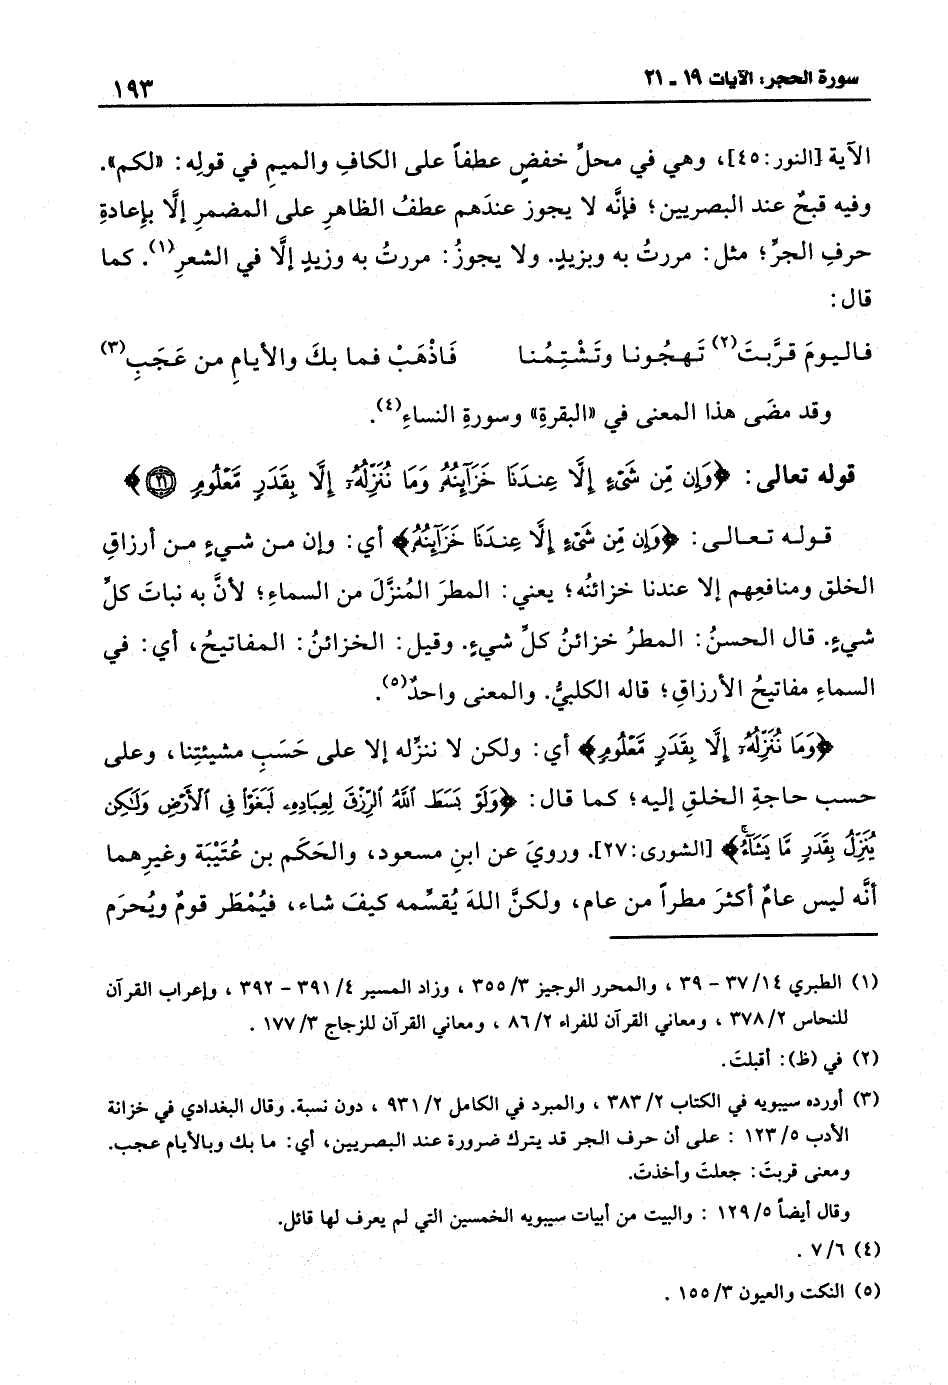 سورة الحجر: الآيات ١٩ ـ ٢١
١٩٣
الآية [النور:٤٥]، وهي في محلِّ خفضٍ عطفاً على الكافِ والميمِ في قولِه: «لكم».
وفيه قبحٌ عند البصريين؛ فإنَّه لا يجوز عندَهم عطفُ الظاهرِ على المضمرِ إلَّا بإعادةِ
حرفِ الجرِّ؛ مثل: مررتُ به وبزيدٍ. ولا يجوزُ: مررتُ به وزيدٍ إلَّا في الشعرِ(١). كما
قال:
فاليومَ قرَّبتَ(٢) تَهجُونا وتَشْتِمُنا فَاذْهَبْ فما بكَ والأيامِ من عَجَبِ(٣)
وقد مضَى هذا المعنى في «البقرةِ» وسورةِ النساءِ(٤).
قوله تعالى: ﴿وَإِن مِّن شَىْءٍ إِلَّا عِندَنَا خَزَآئِنُهُۥ وَمَا نُنَزِّلُهُۥٓ إِلَّا بِقَدَرٍ مَّعْلُومٍ ٢١﴾
قوله تعالى: ﴿وَإِن مِّن شَىْءٍ إِلَّا عِندَنَا خَزَآئِنُهُۥ﴾ أي: وإن من شيءٍ من أرزاقِ
الخلق ومنافعِهم إلا عندنا خزائنُه؛ يعني: المطرَ المُنزَّلَ من السماءِ؛ لأنَّ به نباتَ كلِّ
شيءٍ. قال الحسنُ: المطرُ خزائنُ كلِّ شيءٍ. وقيل: الخزائنُ: المفاتيحُ، أي: في
السماءِ مفاتيحُ الأرزاقِ؛ قاله الكلبيُّ. والمعنى واحدٌ(٥).
﴿وَمَا نُنَزِّلُهُۥٓ إِلَّا بِقَدَرٍ مَّعْلُومٍ﴾ أي: ولكن لا ننزِّله إلا على حَسَبِ مشيئتِنا، وعلى
حسب حاجةِ الخلقِ إليه؛ كما قال: ﴿وَلَوْ بَسَطَ ٱللَّهُ ٱلرِّزْقَ لِعِبَادِهِۦ لَبَغَوْا۟ فِى ٱلْأَرْضِ وَلَٰكِن
يُنَزِّلُ بِقَدَرٍ مَّا يَشَآءُ﴾ [الشورى:٢٧]. ورويَ عن ابنِ مسعود، والحَكَم بن عُتَيْبَة وغيرِهما
أنَّه ليس عامٌ أكثرَ مطراً من عام، ولكنَّ اللهَ يُقسِّمه كيفَ شاء، فيُمْطَر قومٌ ويُحرَم
(١) الطبري ١٤/ ٣٧ - ٣٩ ، والمحرر الوجيز ٣/ ٣٥٥ ، وزاد المسير ٤/ ٣٩١ - ٣٩٢ ، وإعراب القرآن
للنحاس ٢/ ٣٧٨ ، ومعاني القرآن للفراء ٢/ ٨٦ ، ومعاني القرآن للزجاج ٣/ ١٧٧ .
(٢) في (ظ): أقبلتَ.
(٣) أورده سيبويه في الكتاب ٢/ ٣٨٣ ، والمبرد في الكامل ٢/ ٩٣١ ، دون نسبة. وقال البغدادي في خزانة
الأدب ٥/ ١٢٣ : على أن حرف الجر قد يترك ضرورة عند البصريين، أي: ما بك وبالأيام عجب.
ومعنى قربتَ: جعلتَ وأخذتَ.
وقال أيضاً ٥/ ١٢٩ : والبيت من أبيات سيبويه الخمسين التي لم يعرف لها قائل.
(٤) ٦/ ٧ .
(٥) النكت والعيون ٣/ ١٥٥ .